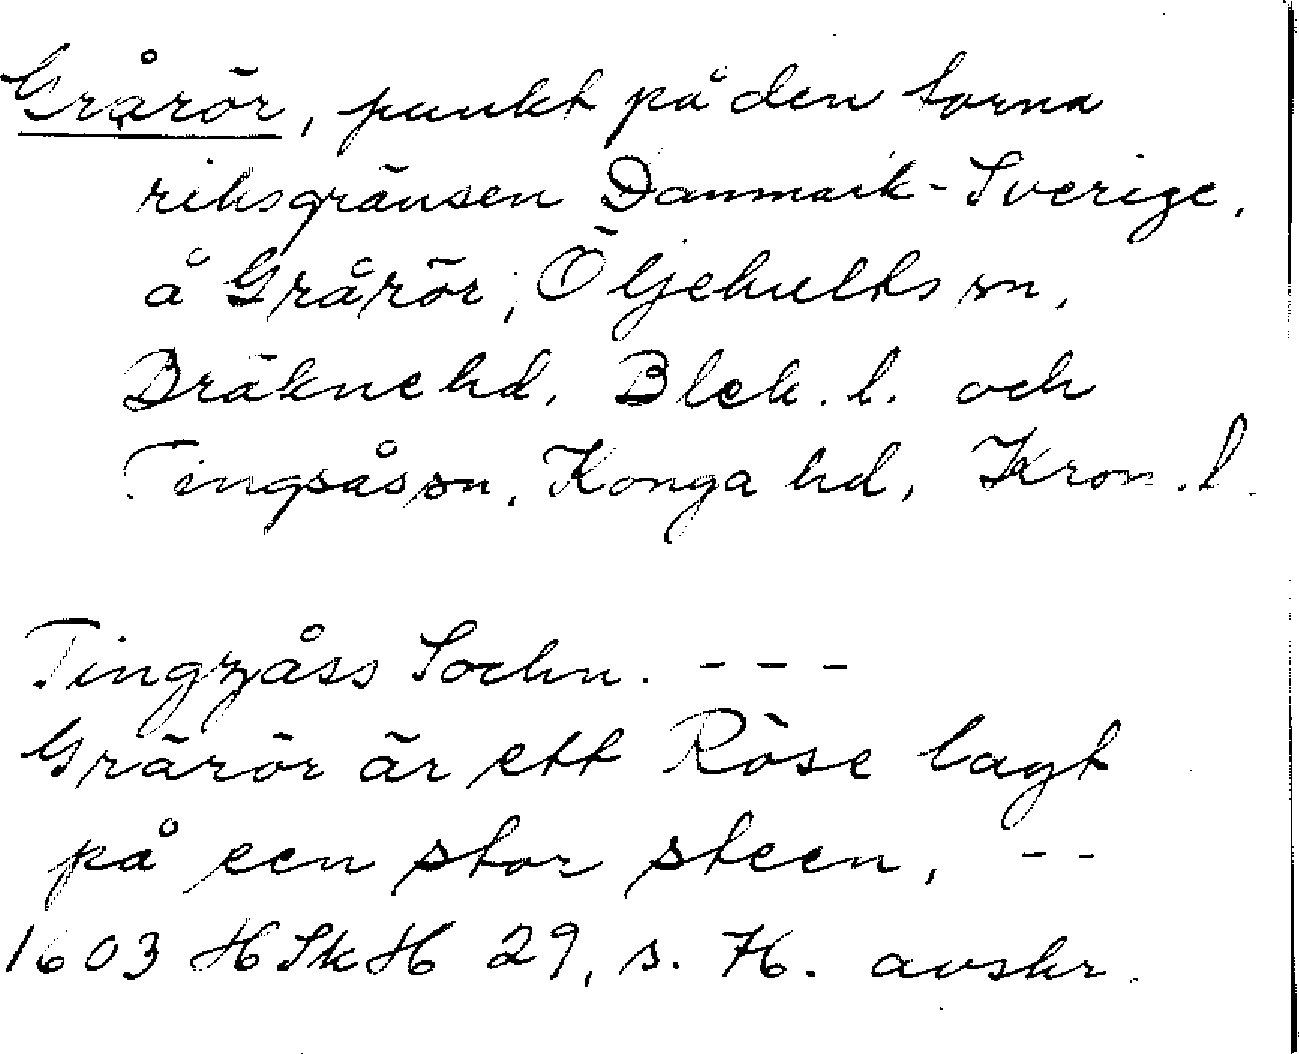 Grårör, punkt på den forna
riksgränsen Danmark-Sverige,
å Grårör, Öljehults sn,
Bräkne hd, Blek. l. och
Tingsås sn, Konga hd, Kron. l.
Tingzåss Sochn. ---
Grårör är ett Röse lagt
på een stor steen, --
1603 HSkH 29, s. 76. avskr.